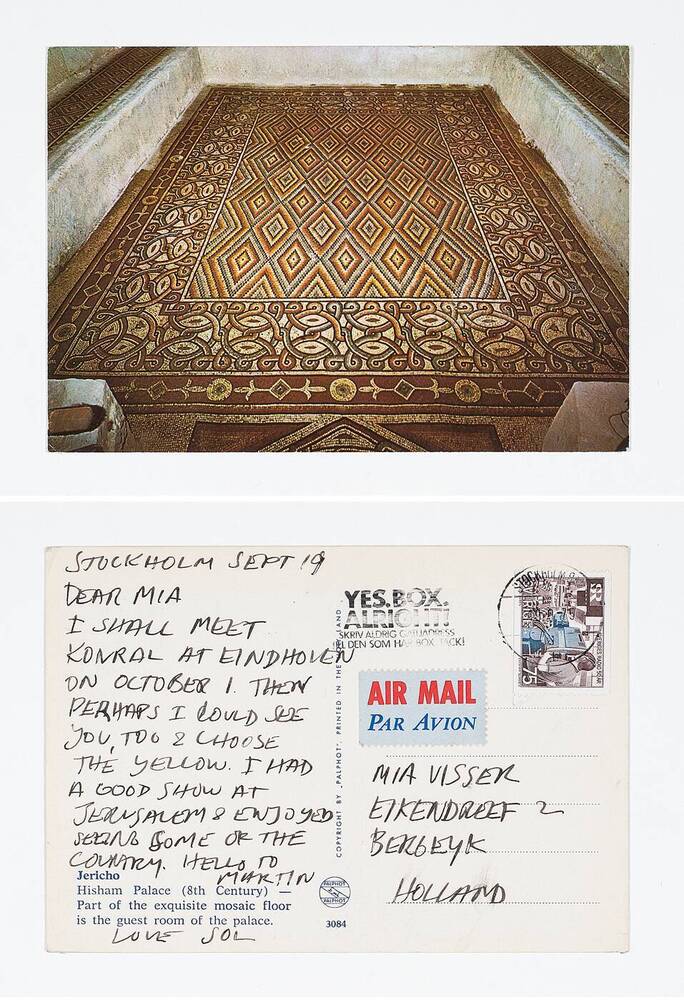 STOCKHOLM SEPT 19
DEAR MIA
I SHALL MEET
KONRAL AT EINDHOVEN
ON OCTOBER 1. THEN
PERHAPS I COULD SEE
YOU, TOO & CHOOSE
THE YELLOW. I HAD
A GOOD SHOW AT
JERUSALEM & ENJOYED
SEEING SOME OF THE
COUNTRY. HELLO TO
MARTIN
Jericho
Hisham Palace (8th Century) —
Part of the exquisite mosaic floor
is the guest room of the palace.
LOVE SOL
COPYRIGHT BY „PALPHOT". PRINTED IN THE
PALPHOT
PALPHOT
3084
YES. BOX.
ALRIGHT!
SKRIV ALDRIG GATUADRESS
TILL DEN SOM HAR BOX. TACK!
STOCKHOLM
SVERIGE
75
AIR MAIL
PAR AVION
MIA VISSER
EIKENDREEF 2
BERGEYK
HOLLAND